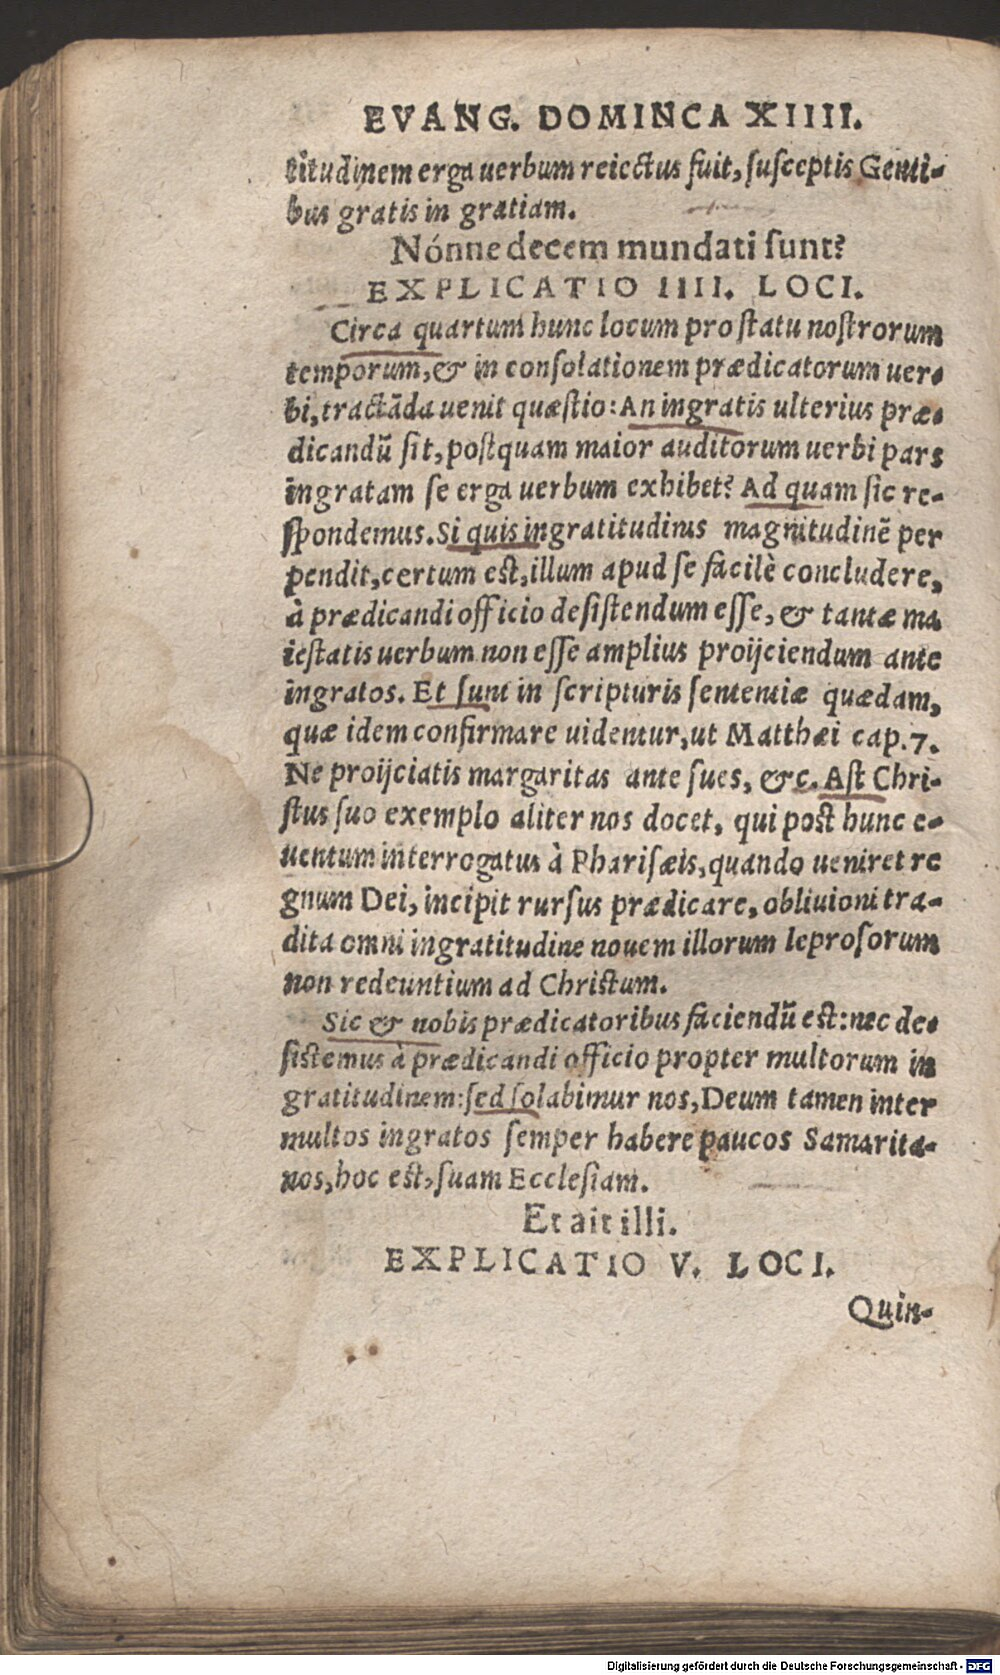 EVANG. DOMINCA XIIII.
titudinem erga uerbum reiectus fuit, susceptis Genti-
bus gratis in gratiam.
Nónne decem mundati sunt?
EXPLICATIO IIII. LOCI.
Circa quartum hunc locum pro statu nostrorum
temporum, & in consolationem prædicatorum uer-
bi, tractāda uenit quæstio: An ingratis ulterius præ-
dicandū sit, postquam maior auditorum uerbi pars
ingratam se erga uerbum exhibet? Ad quam sic re-
spondemus. Si quis ingratitudinis magnitudinē per
pendit, certum est, illum apud se facilè concludere,
à prædicandi officio desistendum esse, & tantæ ma
iestatis uerbum non esse amplius proijciendum ante
ingratos. Et sunt in scripturis sententiæ quædam,
quæ idem confirmare uidentur, ut Matthæi cap. 7.
Ne proijciatis margaritas ante sues, &c. Ast Chri-
stus suo exemplo aliter nos docet, qui post hunc e-
uentum interrogatus à Pharisæis, quando ueniret re
gnum Dei, incipit rursus prædicare, obliuioni tra-
dita omni ingratitudine nouem illorum leprosorum
non redeuntium ad Christum.
Sic & nobis prædicatoribus faciendū est: nec de-
sistemus à prædicandi officio propter multorum in
gratitudinem: sed solabimur nos, Deum tamen inter
multos ingratos semper habere paucos Samarita-
nos, hoc est, suam Ecclesiam.
Et ait illi.
EXPLICATIO V. LOCI.
Quin-
Digitalisierung gefördert durch die Deutsche Forschungsgemeinschaft - DFG